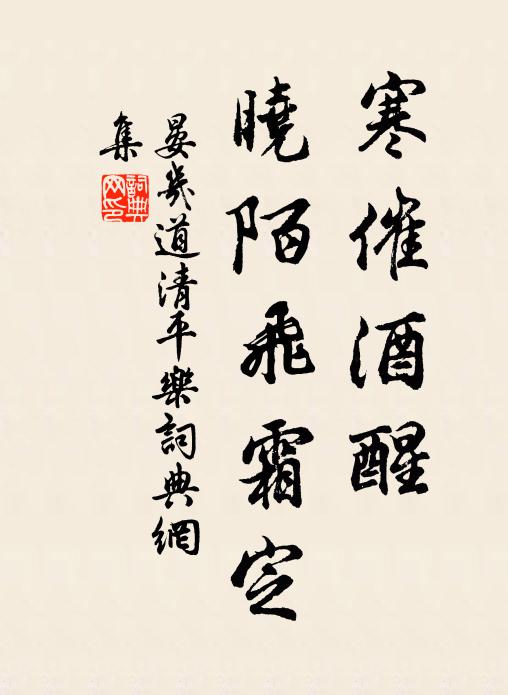 寒催酒醒
曉陌飛霜定
晏幾道清平樂詞典網
集
詞典
网印